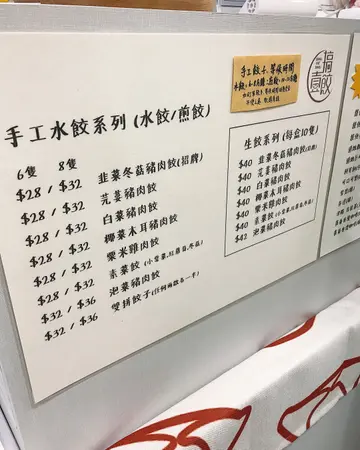 手工水餃系列 (水餃/煎餃)
6隻 8隻
$28 / $32 韭菜冬菇豬肉餃(招牌)
$28 / $32 芫荽豬肉餃
$28 / $32 白菜豬肉餃
$28 / $32 椰菜木耳豬肉餃
$28 / $32 粟米雞肉餃
$28 / $32 素菜餃(小棠菜,紅蘿蔔,冬菇)
$32 / $36 泡菜豬肉餃
$32 / $36 雙拼餃子(任何兩款各一半)
手工餃子,等候時間
生餃系列(每盒10隻)
$40 韭菜冬菇豬肉餃(招牌)
$40 芫荽豬肉餃
$40 白菜豬肉餃
$40 椰菜木耳豬肉餃
$40 粟米雞肉餃
$40 素菜餃(小棠菜,紅蘿蔔,冬菇)
$42 泡菜豬肉餃
搞餃